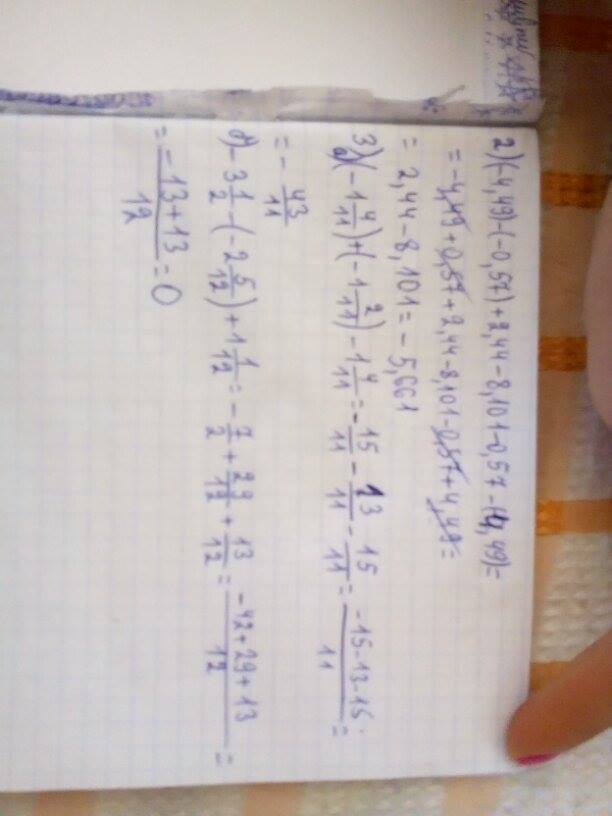 2) (-4,49)-(-0,57)+2,44-8,101-0,57-(4,49)=
= -4,49+0,57+2,44-8,101-0,57+4,49=
= 2,44-8,101= -5,661
3) а) (-1 4/11)+(-1 2/11)-1 4/11= -15/11 - 13/11 - 15/11 = (-15-13-15)/11 =
= - 43/11
б) -3 1/2 - (-2 5/12) + 1 1/12 = -7/2 + 29/12 + 13/12 = (-42+29+13)/12 =
= (-13+13)/12 = 0